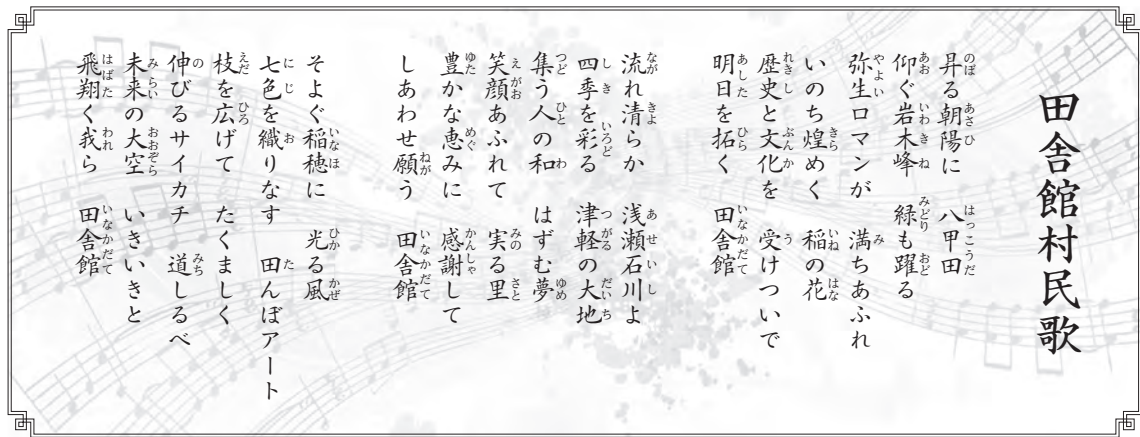 田舎館村民歌
昇る朝陽に　八甲田
仰ぐ岩木峰　緑も躍る
弥生ロマンが　満ちあふれ
いのち煌めく　稲の花
歴史と文化を　受けついで
明日を拓く　田舎館
流れ清らか　浅瀬石川よ
四季を彩る　津軽の大地
集う人の和　はずむ夢
笑顔あふれて　実る里
豊かな恵みに　感謝して
しあわせ願う　田舎館
そよぐ稲穂に　光る風
七色を織りなす　田んぼアート
枝を広げて　たくましく
伸びるサイカチ　道しるべ
未来の大空　いきいきと
飛翔く我ら　田舎館